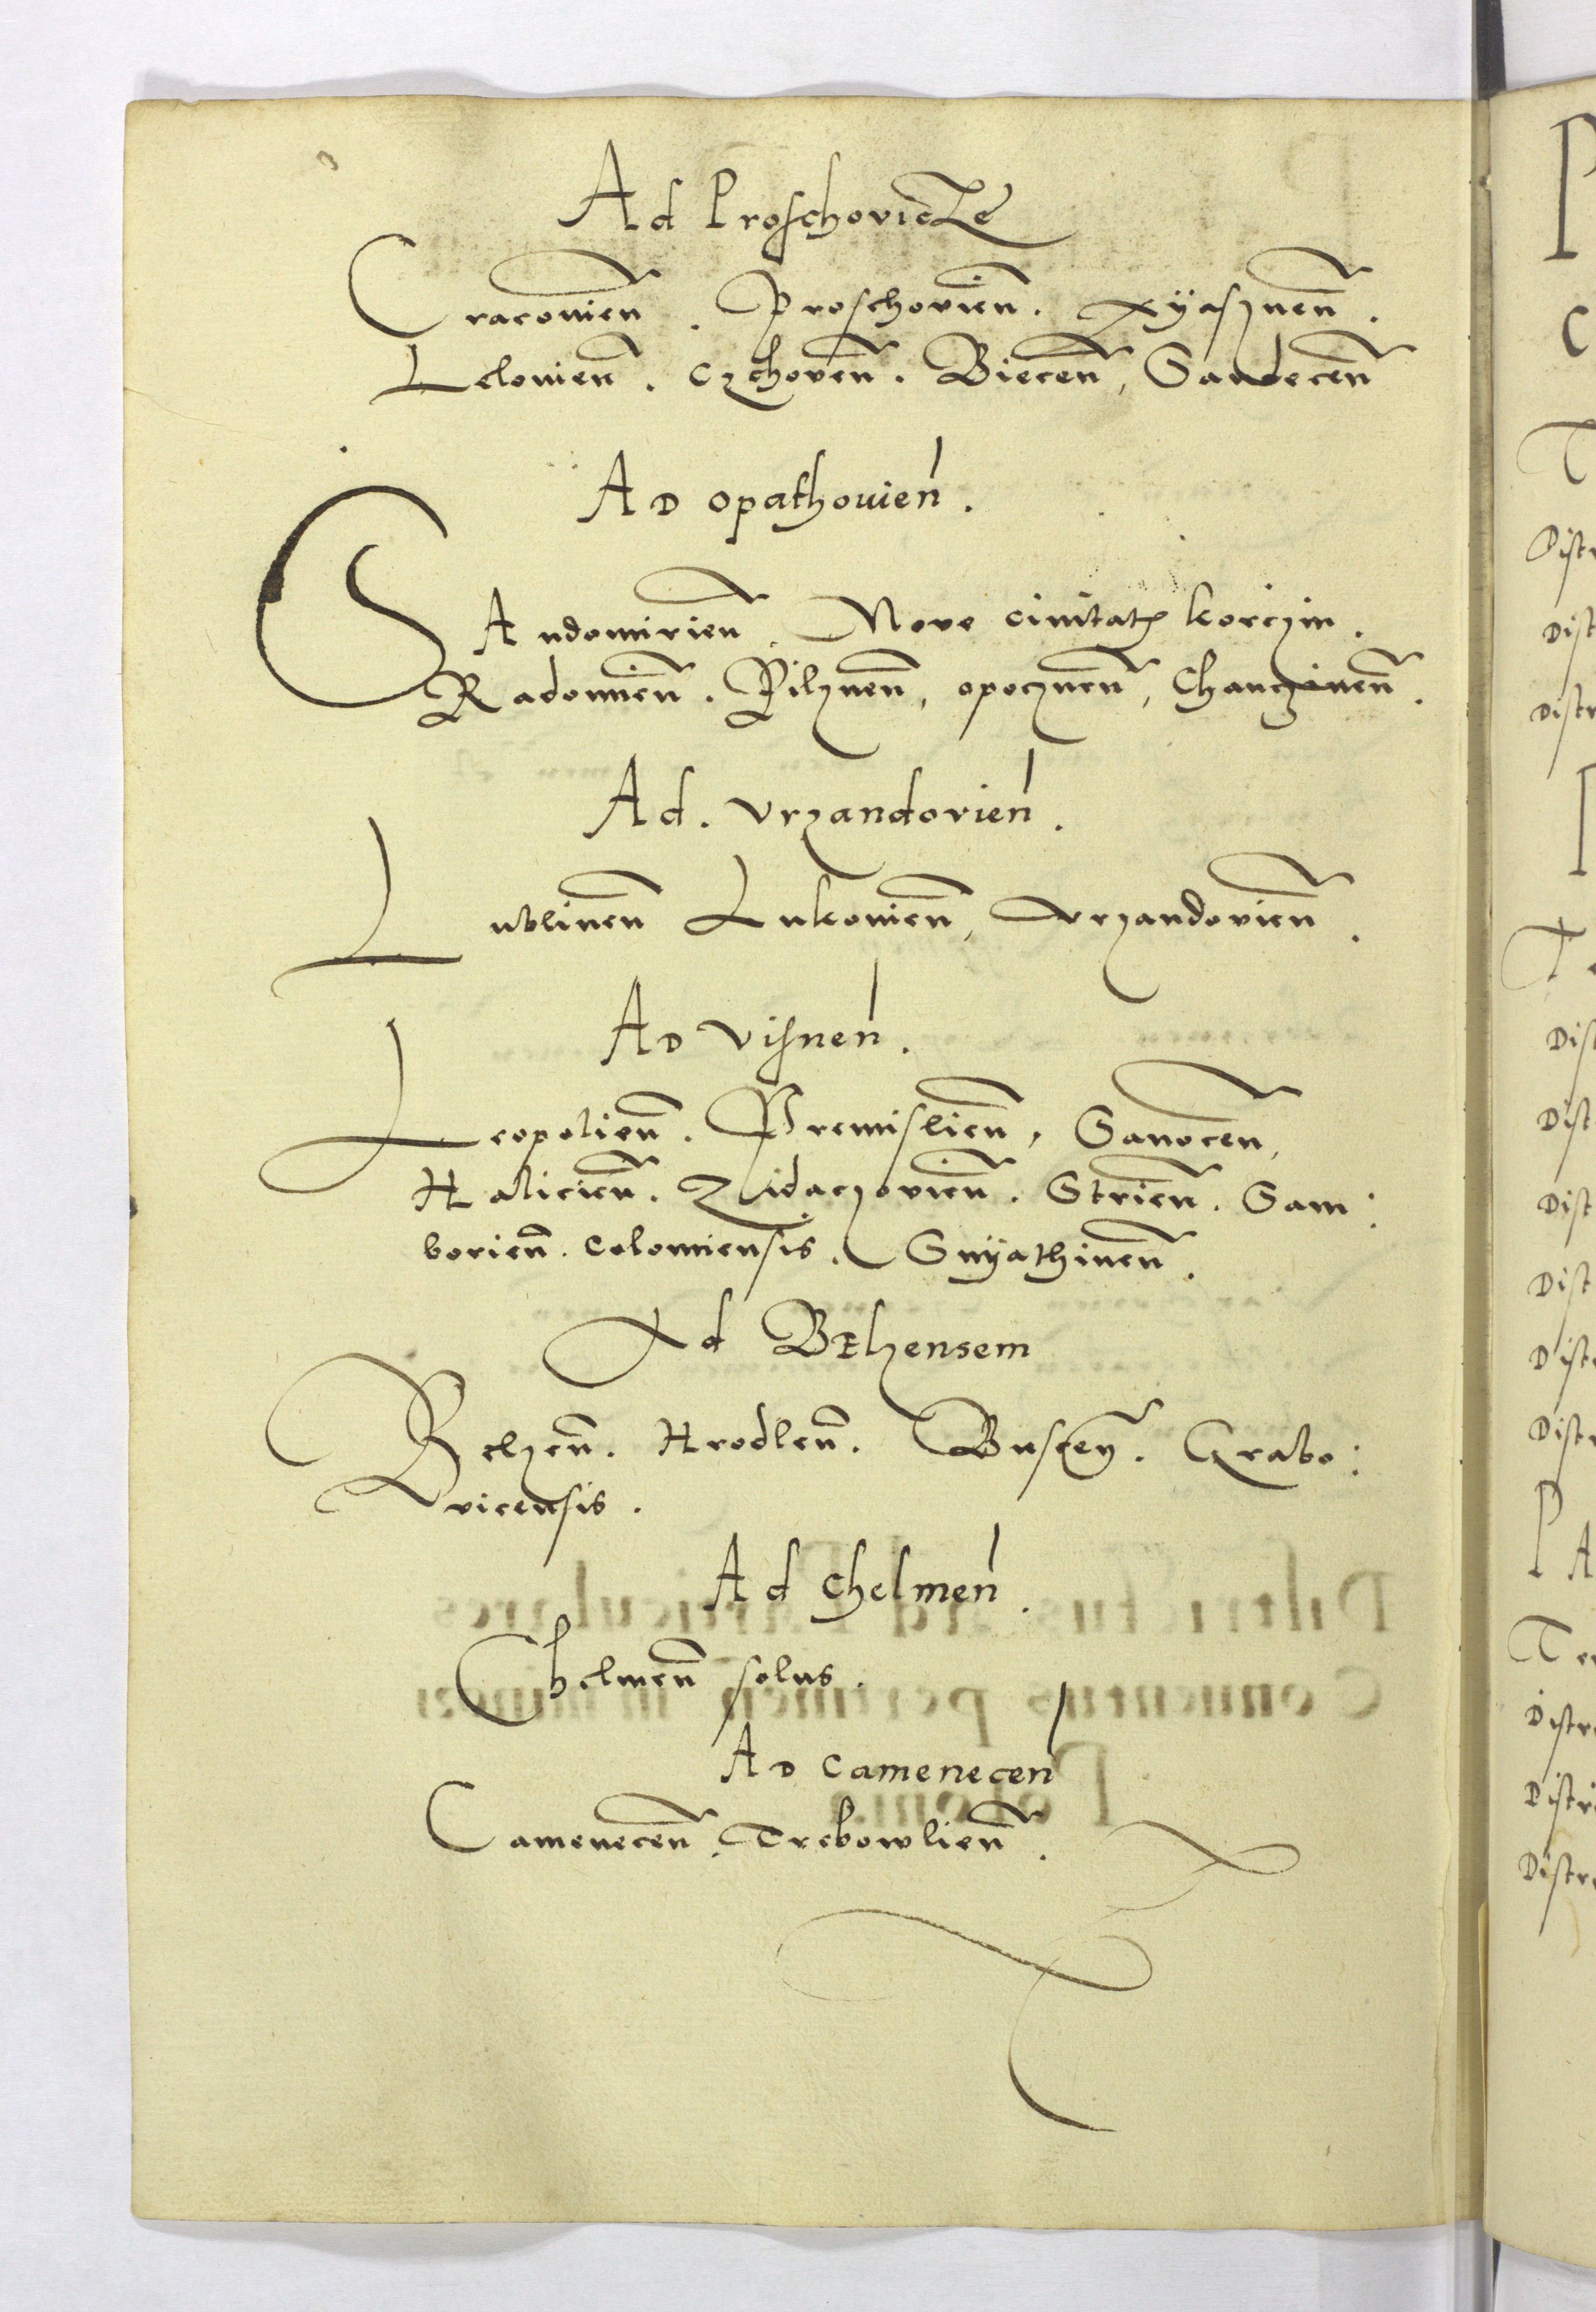 Ad Proschovicze
Cracovien̄. Proschovien̄. Xÿasznen̄.
Lelovien̄. Czchoven̄. Biecen̄, Sandecen̄
AD opathovien̄.
SAndomirien̄. Nove civitatꝭ korczin.
Radomien̄. Pilznen̄, opocznen̄, Chanczinen̄.
Ad. Vrzandovien̄.
Lublinen̄ Lukovien̄, Vrzandovien̄.
AD Visnen̄.
Leopolien̄. Premislien̄, Sanocen̄,
Halicien̄. Zidaczovien̄. Strien̄. Sam:
borien̄. colomiensis. Snÿathinen̄.
Ad BElzensem
Belzen̄. Hrodlen̄. Buscen̄. Grabo:
vicensis.
Ad chelmen̄.
Chelmen̄ solus.
AD camenecen̄
Camenecen̄. Trebowlien̄.